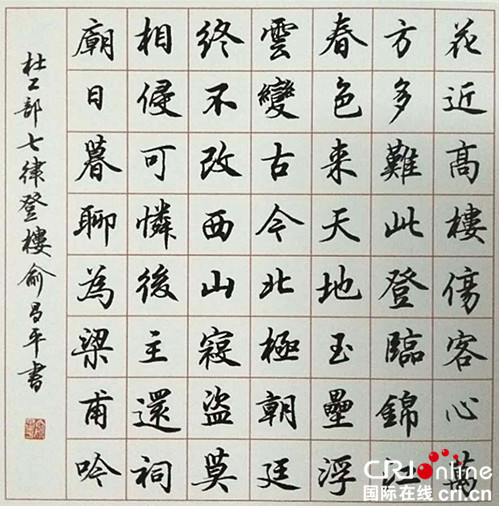 花近高樓傷客心萬
方多難此登臨錦江
春色来天地玉壘浮
雲變古今北極朝廷
終不改西山寇盜莫
相侵可憐後主還祠
廟日暮聊為梁甫吟
杜工部七律登樓俞昌平書
CRIonline
国际在线 cri.cn